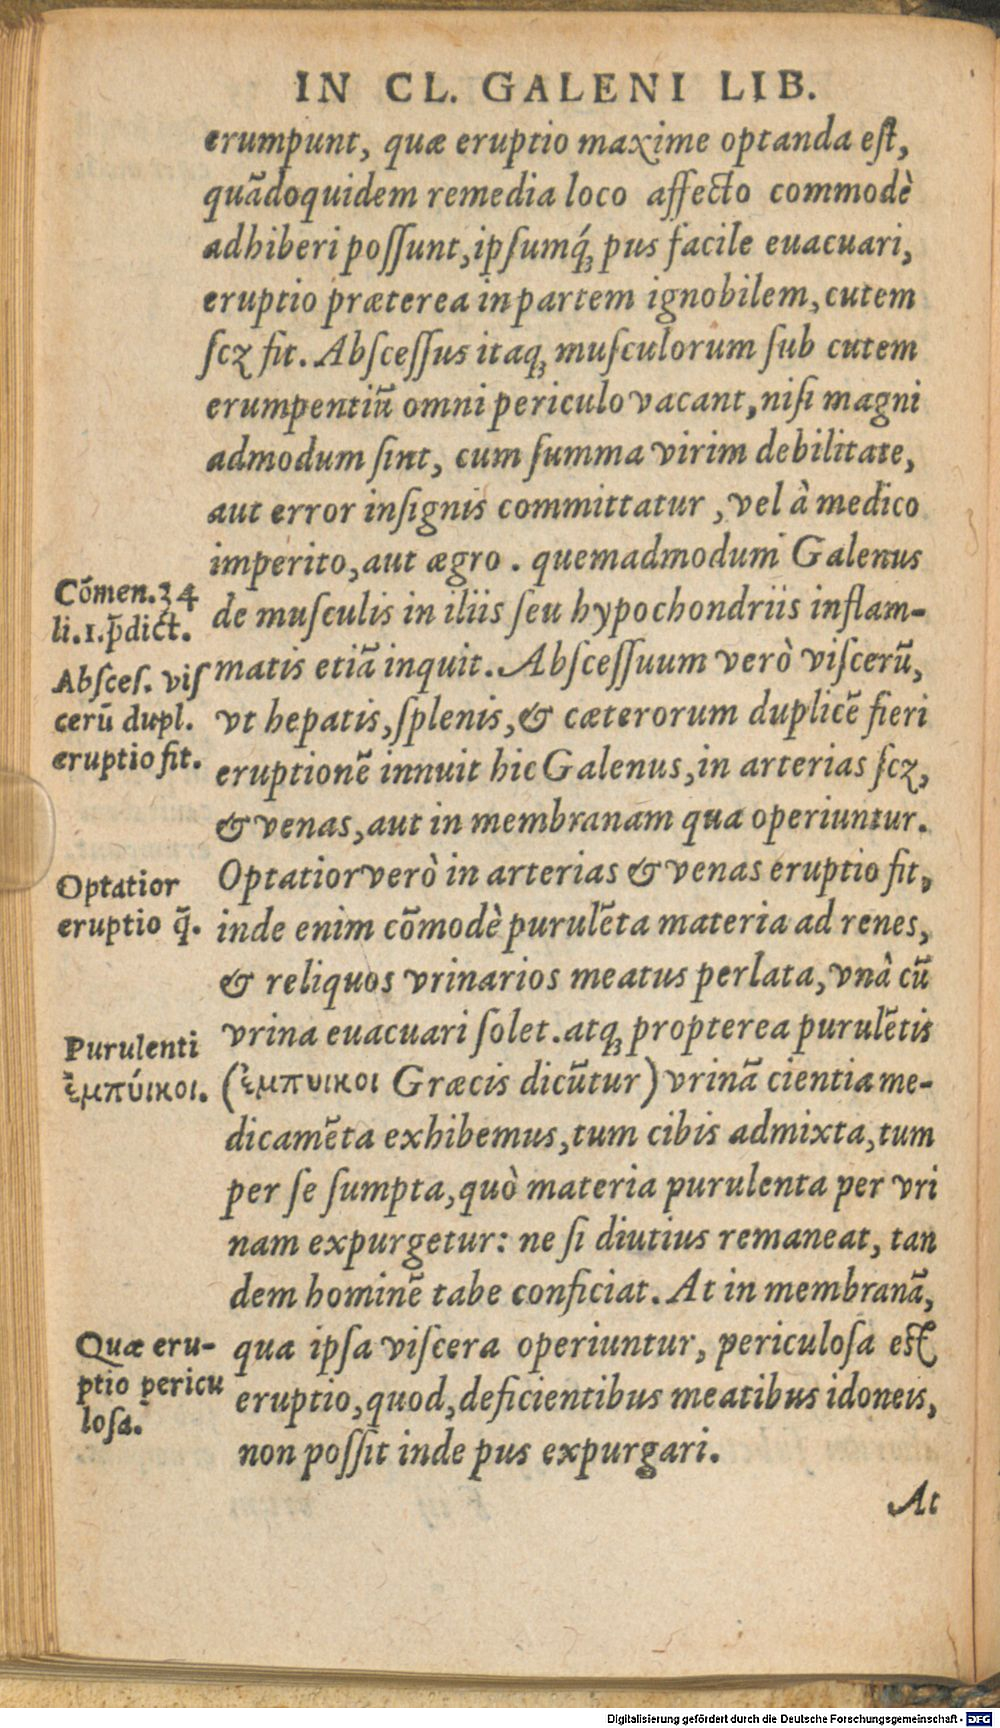 IN CL. GALENI LIB.
erumpunt, quæ eruptio maxime optanda eſt,
quādoquidem remedia loco affecto commodè
adhiberi poſſunt, ipſumq́ꝫ pus facile euacuari,
eruptio præterea in partem ignobilem, cutem
ſcꝫ fit. Abſceſſus itaqꝫ muſculorum ſub cutem
erumpentiū omni periculo vacant, niſi magni
admodum ſint, cum ſumma virim debilitate,
aut error inſignis committatur, vel à medico
imperito, aut ægro. quemadmodum Galenus
de muſculis in iliis ſeu hypochondriis inflam-
matis etiā inquit. Abſceſſuum verò viſcerū,
vt hepatis, ſplenis, & cæterorum duplicē fieri
eruptionē innuit hic Galenus, in arterias ſcꝫ,
& venas, aut in membranam qua operiuntur.
Optatior verò in arterias & venas eruptio fit,
inde enim cōmodè purulēta materia ad renes,
& reliquos vrinarios meatus perlata, vnà cū
vrina euacuari ſolet. atqꝫ propterea purulētis
(ἐμπυικοι Græcis dicūtur) vrinā cientia me-
dicamēta exhibemus, tum cibis admixta, tum
per ſe ſumpta, quò materia purulenta per vri
nam expurgetur: ne ſi diutius remaneat, tan
dem hominē tabe conficiat. At in membranā,
qua ipſa viſcera operiuntur, periculoſa eſt
eruptio, quod, deficientibus meatibus idoneis,
non poſſit inde pus expurgari.
At
Cōmen. 34
li. 1. p̄dict.
Abſceſ. viſ
cerū dupl.
eruptio fit.
Optatior
eruptio q̄.
Purulenti
ἐμπύικοι.
Quæ eru-
ptio pericu
loſa.
Digitalisierung gefördert durch die Deutsche Forschungsgemeinschaft - DFG